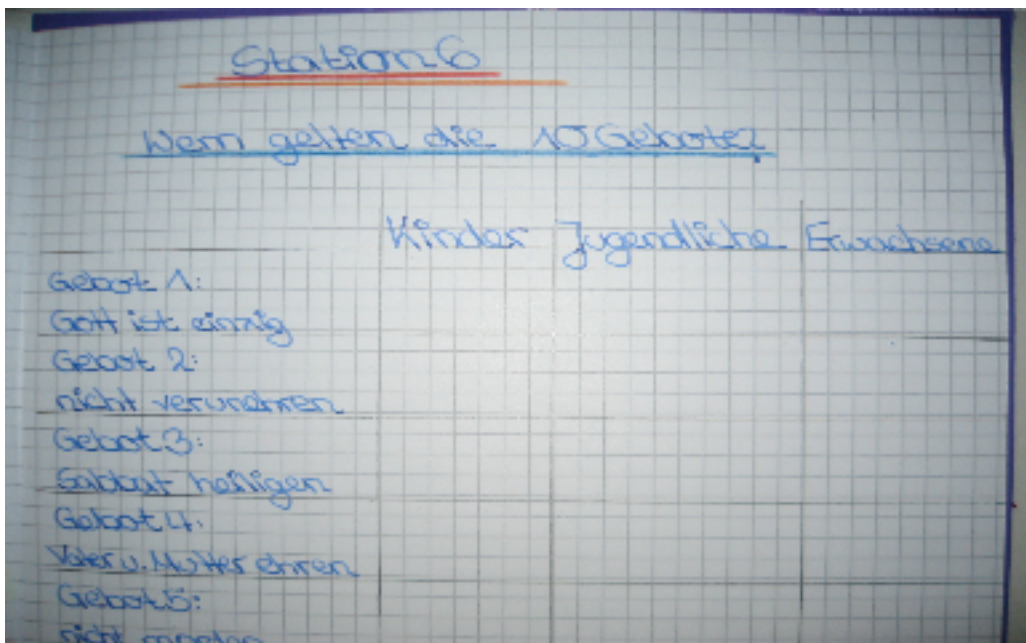 Station 6
Wem gelten die 10 Gebote?
Kinder Jugendliche Erwachsene
Gebot 1:
Gott ist einzig
Gebot 2:
nicht verunehren
Gebot 3:
Sabbat heiligen
Gebot 4:
Vater u. Mutter ehren
Gebot 5:
nicht morden